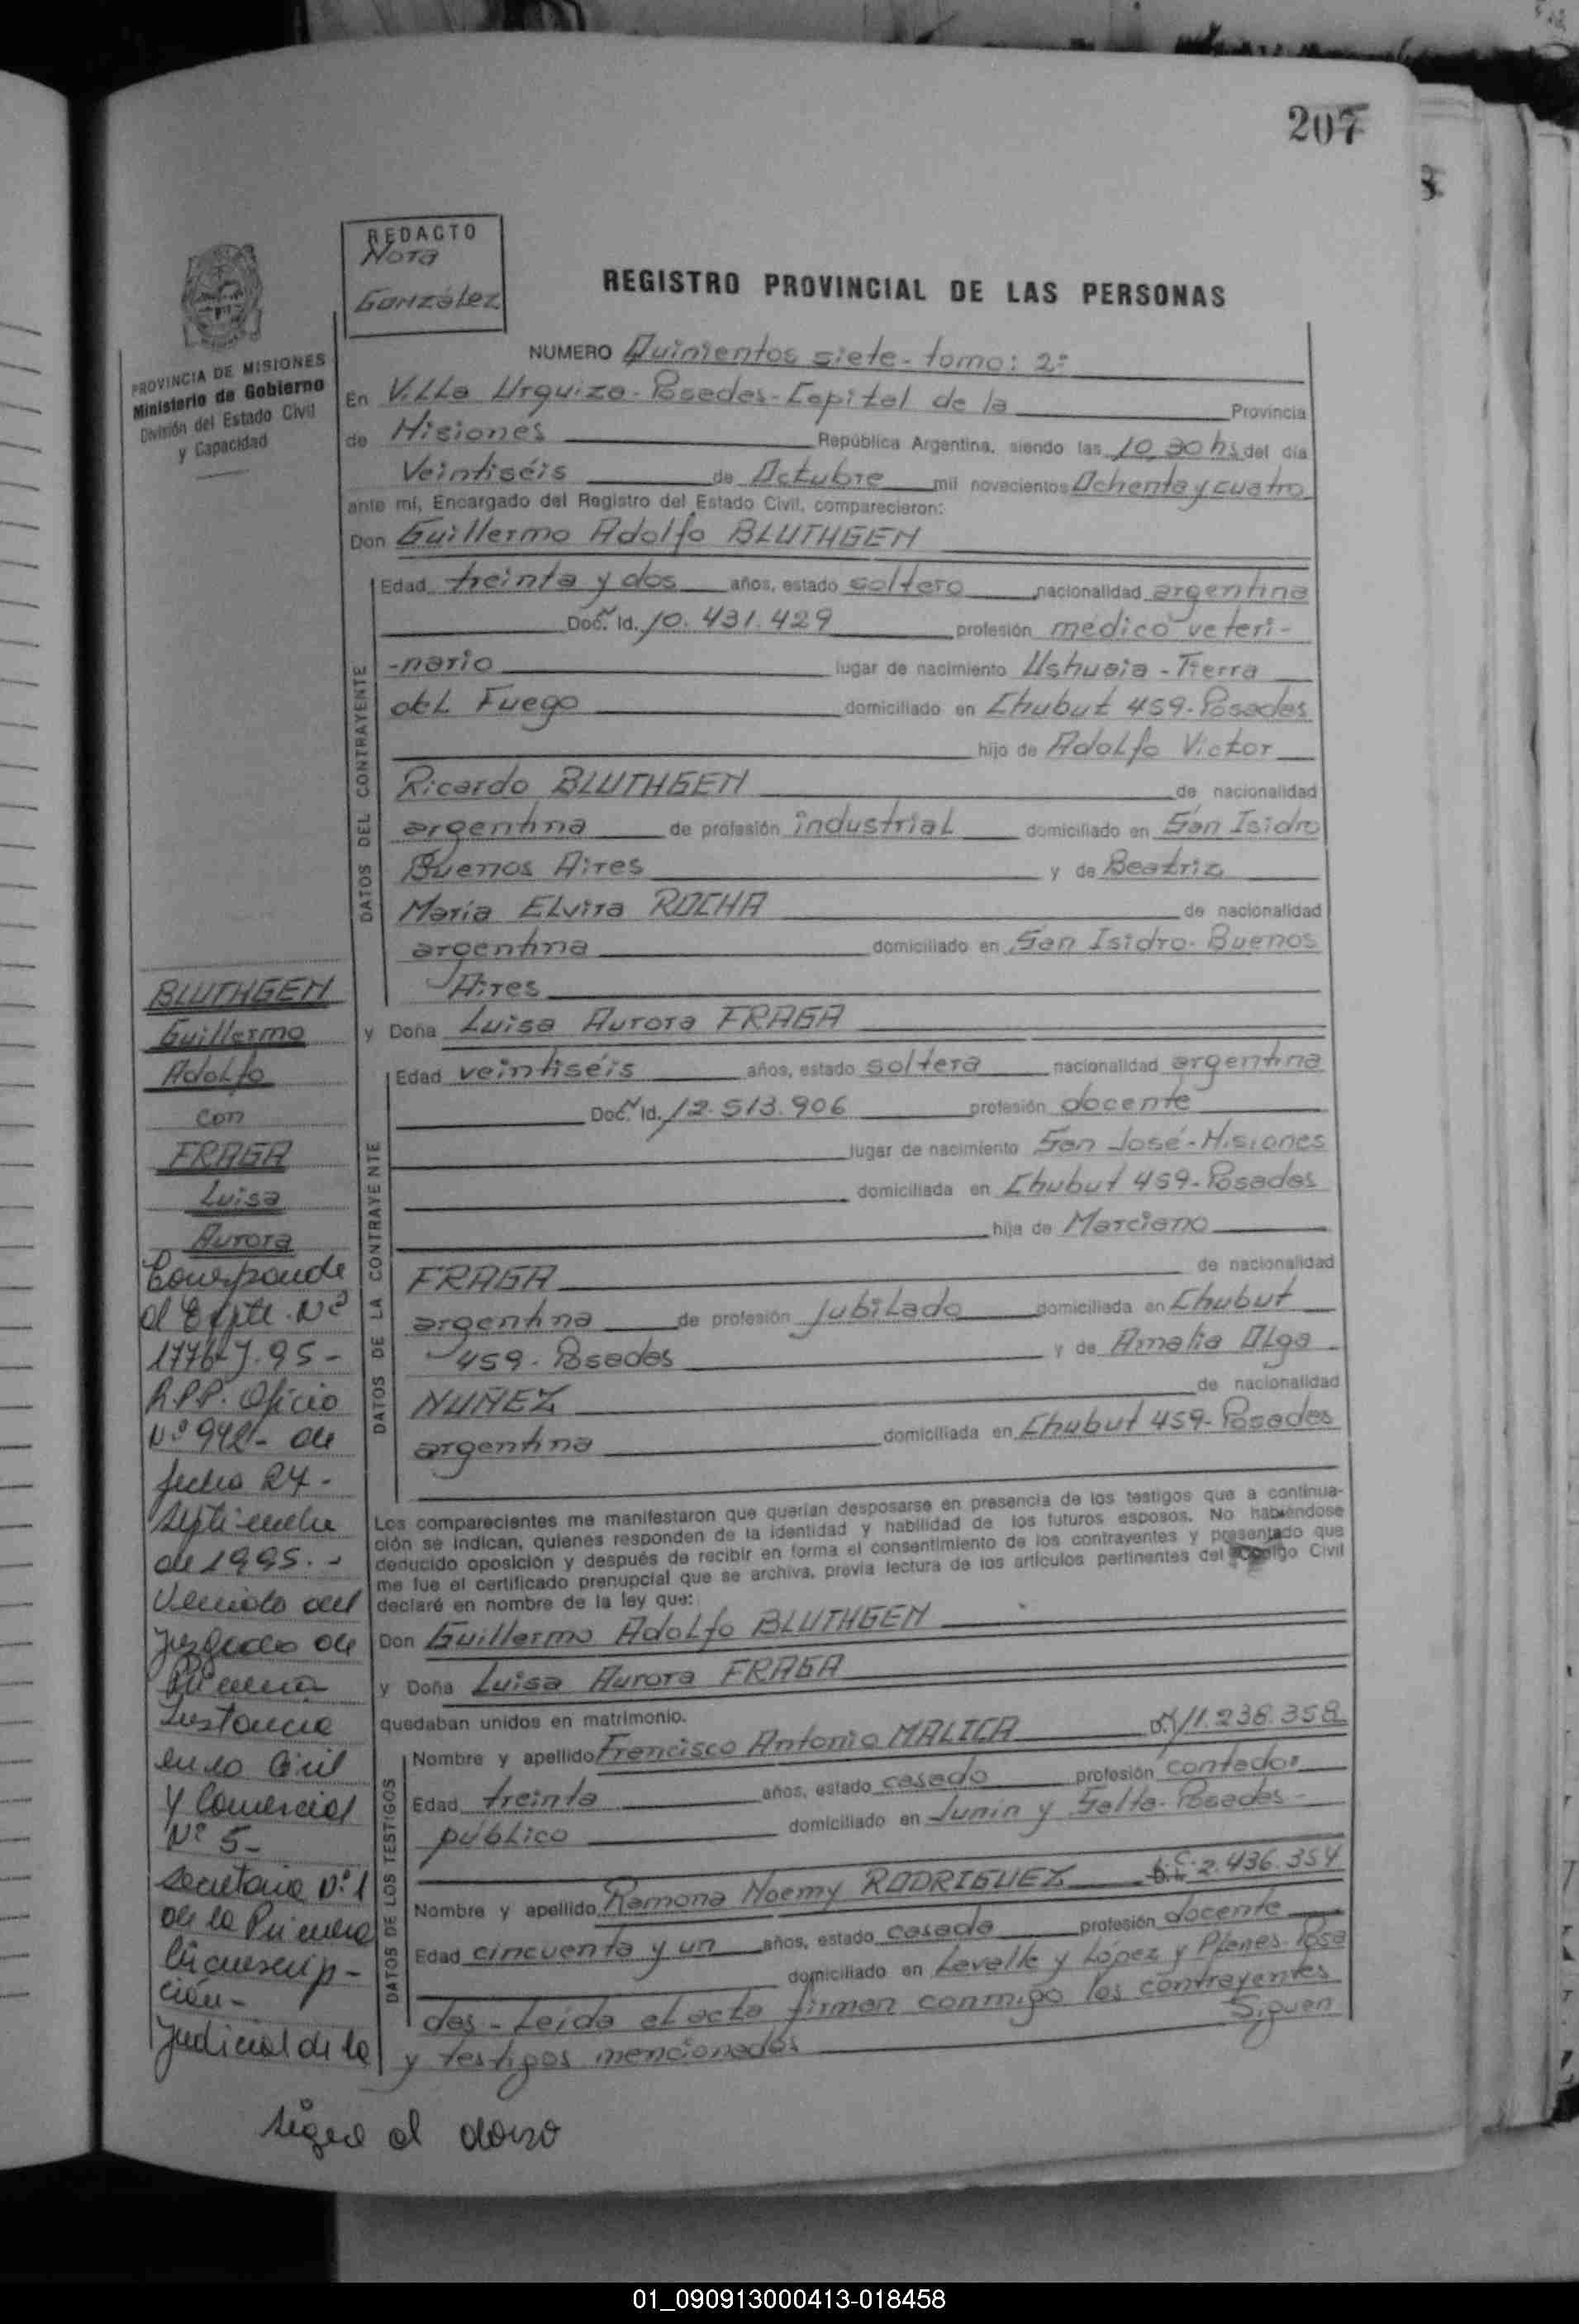 207
REDACTO
Nota
González
REGISTRO PROVINCIAL DE LAS PERSONAS
PROVINCIA DE MISIONES
Ministerio de Gobierno
División del Estado Civil
y Capacidad
NUMERO Quinientos siete - tomo: 2º
En Villa Urquiza - Posadas - Capital de la Provincia
de Misiones República Argentina, siendo las 10,30 hs del día
Veintiséis de Octubre mil novecientos Ochenta y cuatro
ante mí, Encargado del Registro del Estado Civil, comparecieron:
Don Guillermo Adolfo BLUTHGEN
DATOS DEL CONTRAYENTE
Edad treinta y dos años, estado soltero nacionalidad argentina
Doc. Id. 10.431.429 profesión médico veteri-
-nario lugar de nacimiento Ushuaia - Tierra
del Fuego domiciliado en Chubut 459 - Posadas
hijo de Adolfo Victor
Ricardo BLUTHGEN de nacionalidad
argentina de profesión industrial domiciliado en San Isidro
Buenos Aires y de Beatriz
María Elvira ROCHA de nacionalidad
argentina domiciliado en San Isidro - Buenos
Aires
y Doña Luisa Aurora FRAGA
DATOS DE LA CONTRAYENTE
Edad veintiséis años, estado soltera nacionalidad argentina
Doc. Id. 12.513.906 profesión docente
lugar de nacimiento San José - Misiones
domiciliada en Chubut 459 - Posadas
hija de Marciano
FRAGA de nacionalidad
argentina de profesión Jubilado domiciliada en Chubut
459 - Posadas y de Amalia Olga
NUÑEZ de nacionalidad
argentina domiciliada en Chubut 459 - Posadas
Los comparecientes me manifestaron que querían desposarse en presencia de los testigos que a continua-
ción se indican, quienes responden de la identidad y habilidad de los futuros esposos. No habiéndose
deducido oposición y después de recibir en forma el consentimiento de los contrayentes y presentado que
me fue el certificado prenupcial que se archiva, previa lectura de los artículos pertinentes del Código Civil
declaré en nombre de la ley que:
Don Guillermo Adolfo BLUTHGEN
y Doña Luisa Aurora FRAGA
quedaban unidos en matrimonio.
DATOS DE LOS TESTIGOS
Nombre y apellido Francisco Antonio MALICA 11.238.358
Edad treinta años, estado casado profesión contador
público domiciliado en Junín y Salta - Posadas -
Nombre y apellido Ramona Noemy RODRIGUEZ L.C. 2.436.354
Edad cincuenta y un años, estado casada profesión docente
domiciliado en Lavalle y López y Planes - Posa
das - Leída el acta firman conmigo los contrayentes
y testigos mencionados Siguen
BLUTHGEN
Guillermo
Adolfo
con
FRAGA
Luisa
Aurora
Corresponde
al Expte. Nº
95 -
R.P.P. Oficio
Nº de
fecha 24 -
septiembre
de 1995. -
Venido del
Juzgado de
Primera
Instancia
en lo Civil
y Comercial
Nº 5 -
Secretaria Nº 1
de la Primera
Circunscrip-
ción -
Judicial de la
sigue al dorso
01_090913000413-018458